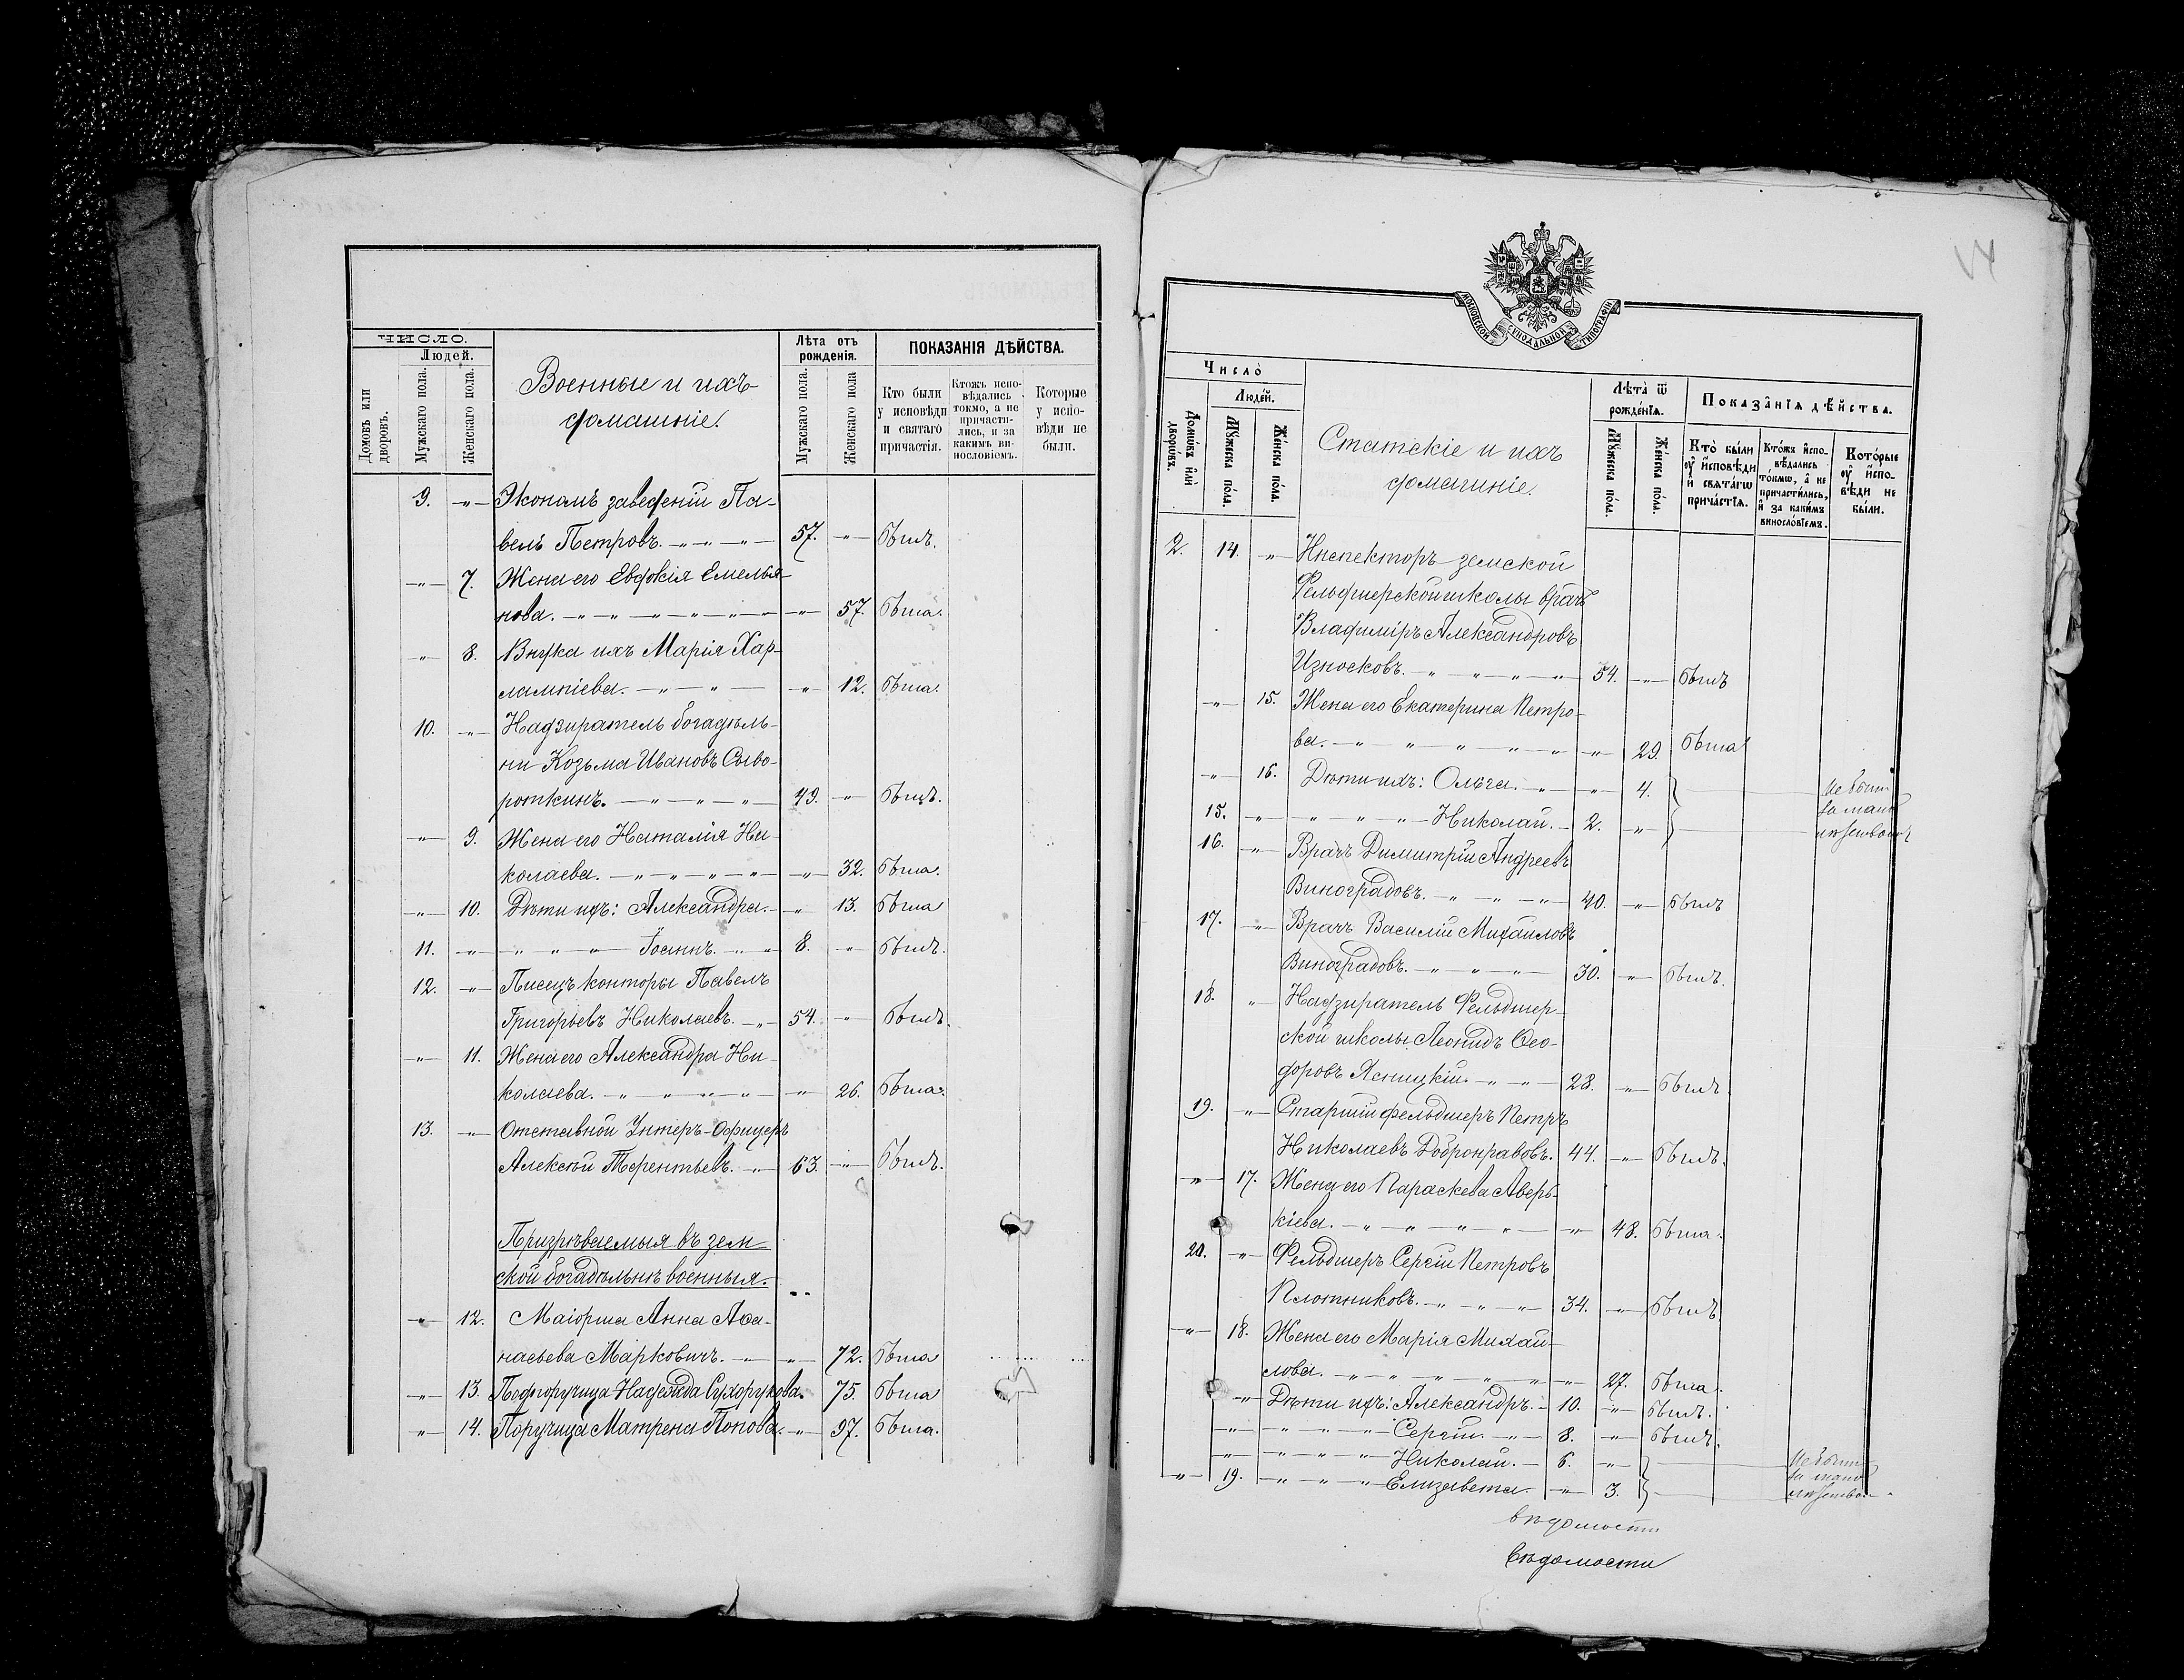 ЧИСЛО.
Людей.
Домовъ или дворовъ.
Мужскаго пола.
Женскаго пола.
Военные и ихъ
домашніе.
Лѣта отъ рожденія.
Мужскаго пола.
Женскаго пола
ПОКАЗАНІЯ ДѢЙСТВА.
Кто были у исповѣди и святаго причастія.
Ктожъ исповѣдались токмо, а не причастились, и за какимъ винословіемъ.
Которые у исповѣди не были.
9. „ Экономъ заведеній Па-
велъ Петровъ. 57. „ Былъ.
„ 7. Жена его Евдокія Емелья-
нова. „ 57. Была.
„ 8. Внука ихъ Марія Хар-
лампіева. „ 12. Была.
10. „ Надзиратель богадѣль-
ни Козьма Ивановъ Сыво-
роткинъ. 49. „ Былъ.
„ 9. Жена его Наталія Ни-
колаева. „ 32. Была.
„ 10. Дѣти ихъ: Александра. „ 13. Была
11. „ „ „ „ Іоаннъ. 8. „ Былъ.
12. „ Писецъ конторы Павелъ
Григорьевъ Николаевъ. 54. „ Былъ.
„ 11. Жена его Александра Ни-
колаева. „ 26. Была.
13. „ Отставной Унтеръ-Офицеръ
Алексѣй Терентьевъ. 63. „ Былъ.
Призрѣваемыя въ зем
ской богадѣльнѣ военныя.
„ 12. Маіорша Анна Аѳа-
насьева Марковичъ. „ 72. Была
„ 13. Подпоручица Надежда Сухорукова. 75. Была
„ 14. Поручица Матрена Попова. „ 97. Была.
МОСКОВСКОЙ СѴНОДАЛЬНОЙ ТИПОГРАФІИ
Число̀
Людей.
Домѡ́въ и҆лѝ дворѡ́въ.
Мꙋ́жеска по́ла.
Же́нска по́ла.
Статскіе и ихъ
домашніе.
Лѣта̀ ѿ рожде́нїѧ.
Мꙋ́жеска по́ла.
Же́нска по́ла.
Показа̂нїѧ дѣ́йства.
Кто̀ бы́ли ᲂу҆ и҆сповѣди и҆ свѧта́гѡ прича́стїѧ.
Кто́жъ и҆сповѣдались то́кмѡ, а҆ не причасти́лись, и҆ за каки́мъ винослѡ́вїемъ.
Кото́рые ᲂу҆ и҆сповѣди не бы́ли.
2. 14. „ Инспекторъ земской
Фельдшерской школы врачъ
Владиміръ Александровъ
Износковъ. 54. „ Былъ
„ 15. Жена его Екатерина Петро-
ва. „ 29. Была
„ 16. Дѣти ихъ: Ольга. „ 4. Не были
за мало
15. „ „ „ „ Николай. 2. „ лѣтствомъ
16. „ Врачъ Димитрій Андреевъ
Виноградовъ. 40. „ Былъ
17. „ Врачъ Василій Михаиловъ
Виноградовъ. 30. „ Былъ.
18. „ Надзиратель Фельдшер-
ской школы Леонидъ Ѳео-
доровъ Ясницкій. 28. „ Былъ.
19. „ Старшій фельдшеръ Петръ
Николаевъ Добронравовъ. 44. „ Былъ.
„ 17. Жена его Параскева Аверь-
кіева. „ 48. Была.
20. „ Фельдшеръ Сергій Петровъ
Плотниковъ. 34. „ Былъ
„ 18. Жена его Марія Михай-
лова. „ 27. Была.
„ Дѣти ихъ: Александръ. 10. „ Былъ.
„ „ „ „ Сергій. 8. „ Былъ.
„ „ „ „ Николай. 6. „ Не были
за мало
„ 19. „ „ „ Елизавета. „ 3. лѣтствомъ
вѣдомости
Вѣдомости